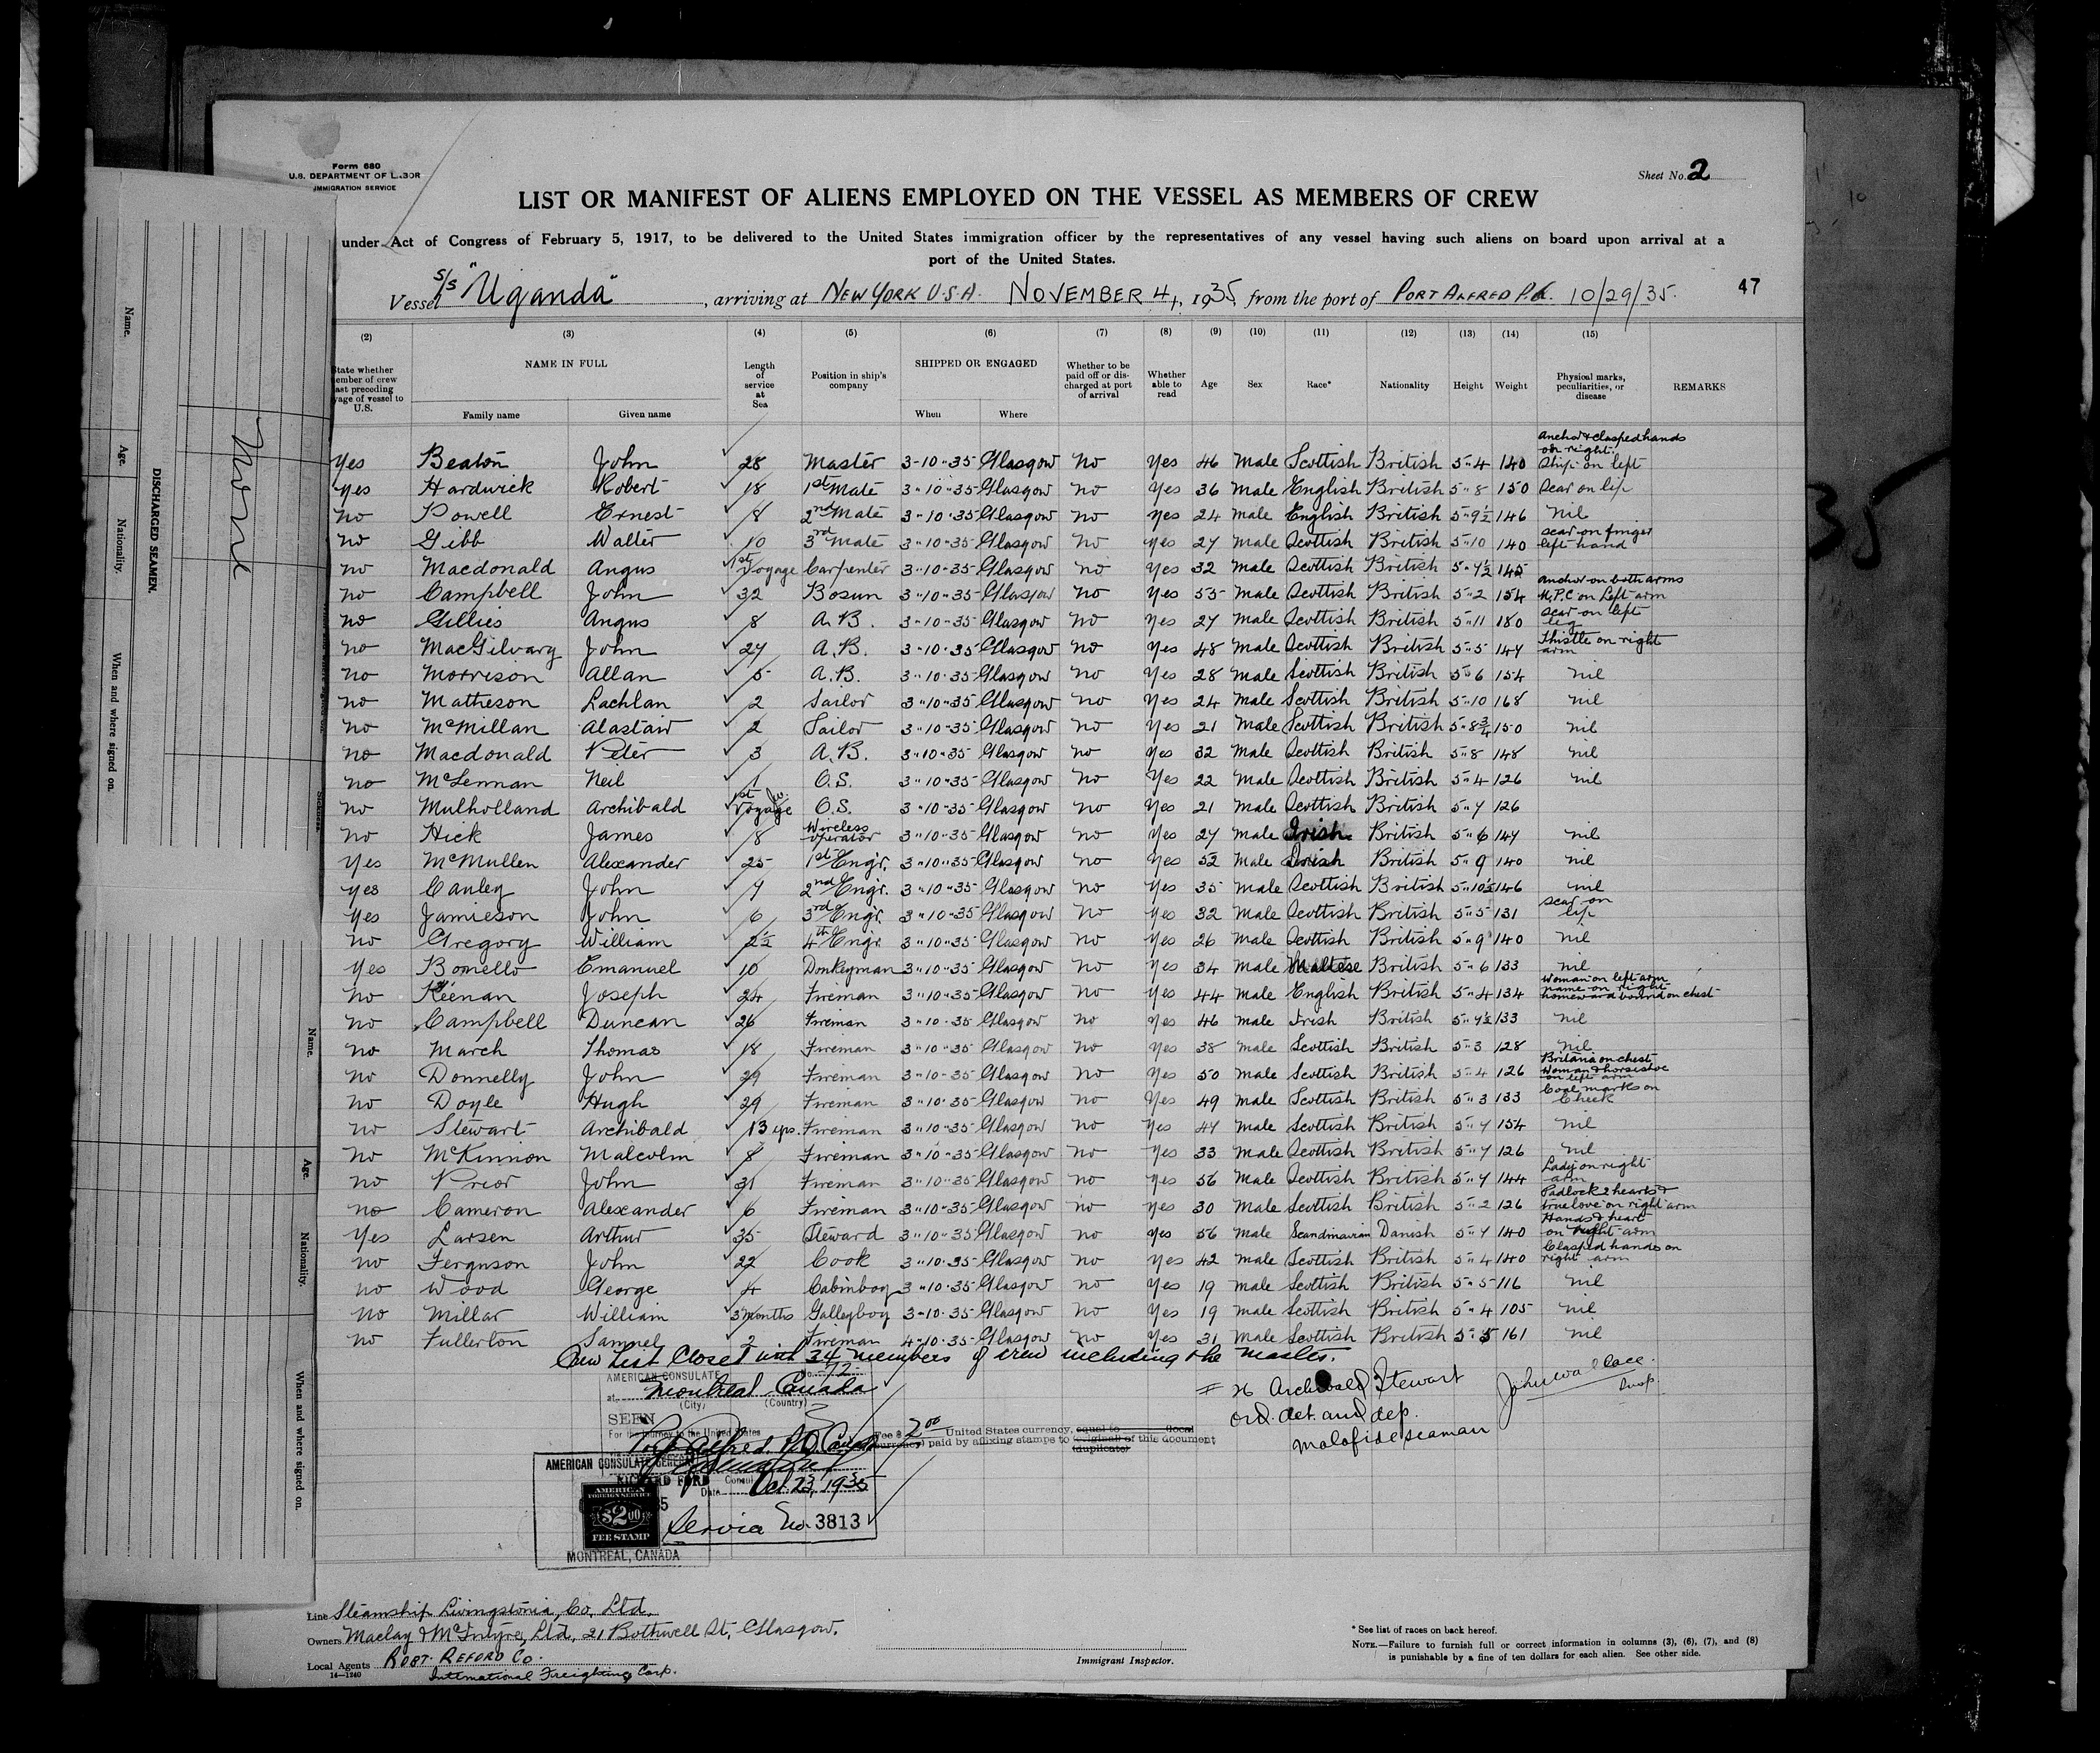 Form 680
U.S. DEPARTMENT OF LABOR
IMMIGRATION SERVICE
Sheet No. 2
LIST OR MANIFEST OF ALIENS EMPLOYED ON THE VESSEL AS MEMBERS OF CREW
under Act of Congress of February 5, 1917, to be delivered to the United States immigration officer by the representatives of any vessel having such aliens on board upon arrival at a
port of the United States.
Vessel S/S "Uganda", arriving at NEW YORK U.S.A. NOVEMBER 4, 1935, from the port of PORT ALFRED P.Q. 10/29/35.
47
(2) (3) (4) (5) (6) (7) (8) (9) (10) (11) (12) (13) (14) (15)
State whether member of crew last preceding voyage of vessel to U.S. NAME IN FULL Family name Given name Length of service at Sea Position in ship's company SHIPPED OR ENGAGED When Where Whether to be paid off or discharged at port of arrival Whether able to read Age Sex Race* Nationality Height Weight Physical marks, peculiarities, or disease REMARKS
Yes Beaton John 28 Master 3-10-35 Glasgow No Yes 46 Male Scottish British 5"4 140 Anchor & clasped hands on right. Ship on left
Yes Hardwick Robert 18 1st Mate 3"10"35 Glasgow No Yes 36 Male English British 5"8 150 Scar on lip
No Powell Ernest 8 2nd Mate 3"10"35 Glasgow No Yes 24 Male English British 5"9½ 146 Nil
No Gibb Walter 10 3rd Mate 3"10"35 Glasgow No Yes 27 Male Scottish British 5"10 140 scar on finger left hand
No Macdonald Angus 1st Voyage Carpenter 3"10"35 Glasgow No Yes 32 Male Scottish British 5"7½ 145
No Campbell John 32 Bosun 3"10"35 Glasgow No Yes 55 Male Scottish British 5"2 154 Anchor on both arms M.P.C on Left arm
No Gillies Angus 8 A.B. 3"10"35 Glasgow No Yes 27 Male Scottish British 5"11 180 scar on left leg
No MacGilvary John 27 A.B. 3"10"35 Glasgow No Yes 48 Male Scottish British 5"5 147 Thistle on right arm
No Morrison Allan 5 A.B. 3"10"35 Glasgow No Yes 28 Male Scottish British 5"6 154 nil
No Matheson Lachlan 2 Sailor 3"10"35 Glasgow No Yes 24 Male Scottish British 5"10 168 nil
No McMillan Alastair 2 Sailor 3"10"35 Glasgow No Yes 21 Male Scottish British 5"8¾ 150 nil
No Macdonald Peter 3 A.B. 3"10"35 Glasgow No Yes 32 Male Scottish British 5"8 148 nil
No McLennan Neil 1 O.S. 3"10"35 Glasgow No Yes 22 Male Scottish British 5"4 126 nil
No Mulholland Archibald 1st Voyage O.S. 3"10"35 Glasgow No Yes 21 Male Scottish British 5"7 126
No Hick James 8 Wireless operator 3"10"35 Glasgow No Yes 27 Male Irish British 5"6 147 nil
Yes McMullen Alexander 25 1st Engr. 3"10"35 Glasgow No Yes 52 Male Irish British 5"9 140 nil
Yes Cauley John 7 2nd Engr. 3"10"35 Glasgow No Yes 35 Male Scottish British 5"10½ 146 nil
Yes Jamieson John 6 3rd Engr. 3"10"35 Glasgow No Yes 32 Male Scottish British 5"5 131 scar on lip
No Gregory William 2½ 4th Engr 3"10"35 Glasgow No Yes 26 Male Scottish British 5"9 140 Nil
Yes Bonello Emanuel 10 Donkeyman 3"10"35 Glasgow No Yes 34 Male Maltese British 5"6 133 nil
No Keenan Joseph 24 Fireman 3"10"35 Glasgow No Yes 44 Male English British 5"4 134 Woman on left arm name on right homeward bound on chest
No Campbell Duncan 26 Fireman 3"10"35 Glasgow No Yes 46 Male Irish British 5"7½ 133 nil
No March Thomas 18 Fireman 3"10"35 Glasgow No Yes 38 Male Scottish British 5"3 128 nil
No Donnelly John 29 Fireman 3"10"35 Glasgow No Yes 50 Male Scottish British 5"4 126 Britania on chest Woman & horseshoe on left arm
No Doyle Hugh 29 Fireman 3"10"35 Glasgow No Yes 49 Male Scottish British 5"3 133 Coal marks on Cheek
No Stewart Archibald 13 yrs. Fireman 3"10"35 Glasgow No Yes 47 Male Scottish British 5"7 154 nil
No McKinnon Malcolm 8 Fireman 3"10"35 Glasgow No Yes 33 Male Scottish British 5"7 126 nil
No Prior John 31 Fireman 3"10"35 Glasgow No Yes 56 Male Scottish British 5"7 144 Lady on right arm
No Cameron Alexander 6 Fireman 3"10"35 Glasgow No Yes 30 Male Scottish British 5"2 126 Padlock 2 hearts & true love on right arm
Yes Larsen Arthur 35 Steward 3"10"35 Glasgow No Yes 56 Male Scandinavian Danish 5"7 140 Hands & heart on right arm
No Ferguson John 22 Cook 3"10"35 Glasgow No Yes 42 Male Scottish British 5"4 140 Clasped hands on right arm
No Wood George 4 Cabinboy 3"10"35 Glasgow No Yes 19 Male Scottish British 5"5 116 nil
No Millar William 3 Months Galleyboy 3-10-35 Glasgow No Yes 19 Male Scottish British 5"4 105 nil
No Fullerton Samuel 2 Fireman 4"10"35 Glasgow No Yes 31 Male Scottish British 5"5 161 nil
Crew List Closed with 34 members of crew including the Master.
AMERICAN CONSULATE
at Montreal Canada
(City) (Country)
SEEN
For the journey to the United States
Port Alfred P.Q. Canada
Fee $ 2.00 United States currency, equal to local
currency) paid by affixing stamps to (original) of this document
(duplicate)
# 26 Archibald Stewart
ord. det. and dep.
Malafide seaman
John Wallace.
Insp.
AMERICAN CONSULATE GENERAL
RICHARD FORD Consul
Date Oct 23, 1935
AMERICAN
FOREIGN SERVICE
$2.00
FEE STAMP
Service No. 3813
MONTREAL, CANADA
Line Steamship Livingstonia, Co. Ltd.
Owners Maclay & McIntyre, Ltd, 21 Bothwell St, Glasgow.
Local Agents ROBT. REFORD CO.
14-1240
International Freighting Corp.
Immigrant Inspector.
* See list of races on back hereof.
NOTE.—Failure to furnish full or correct information in columns (3), (6), (7), and (8)
is punishable by a fine of ten dollars for each alien. See other side.
DISCHARGED SEAMEN.
Name.
Age.
Nationality.
When and where signed on.
None
Name.
Age.
Nationality.
When and where signed on.
35